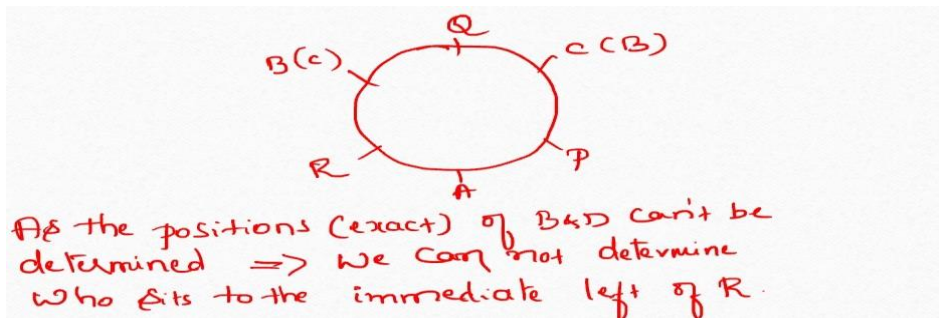 Q
B(C)
C (B)
R
P
A
As the positions (exact) of B&D can't be
determined => we can not determine
who sits to the immediate left of R.